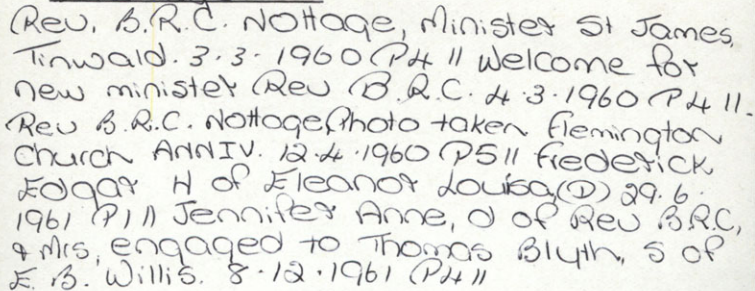 Rev. B.R.C. Nottage, Minister St James,
Tinwald. 3.3.1960 P4 || Welcome for
new minister Rev B.R.C. 4.3.1960 P4 ||.
Rev B.R.C. Nottage, Photo taken Flemington
Church ANNIV. 12.4.1960 P5 || Frederick
Edgar H of Eleanor Louisa (D) 29.6.
1961 P1 || Jennifer Anne, d of Rev B.R.C,
& Mrs, engaged to Thomas Blyth, S of
E. B. Willis. 8.12.1961 P4 ||